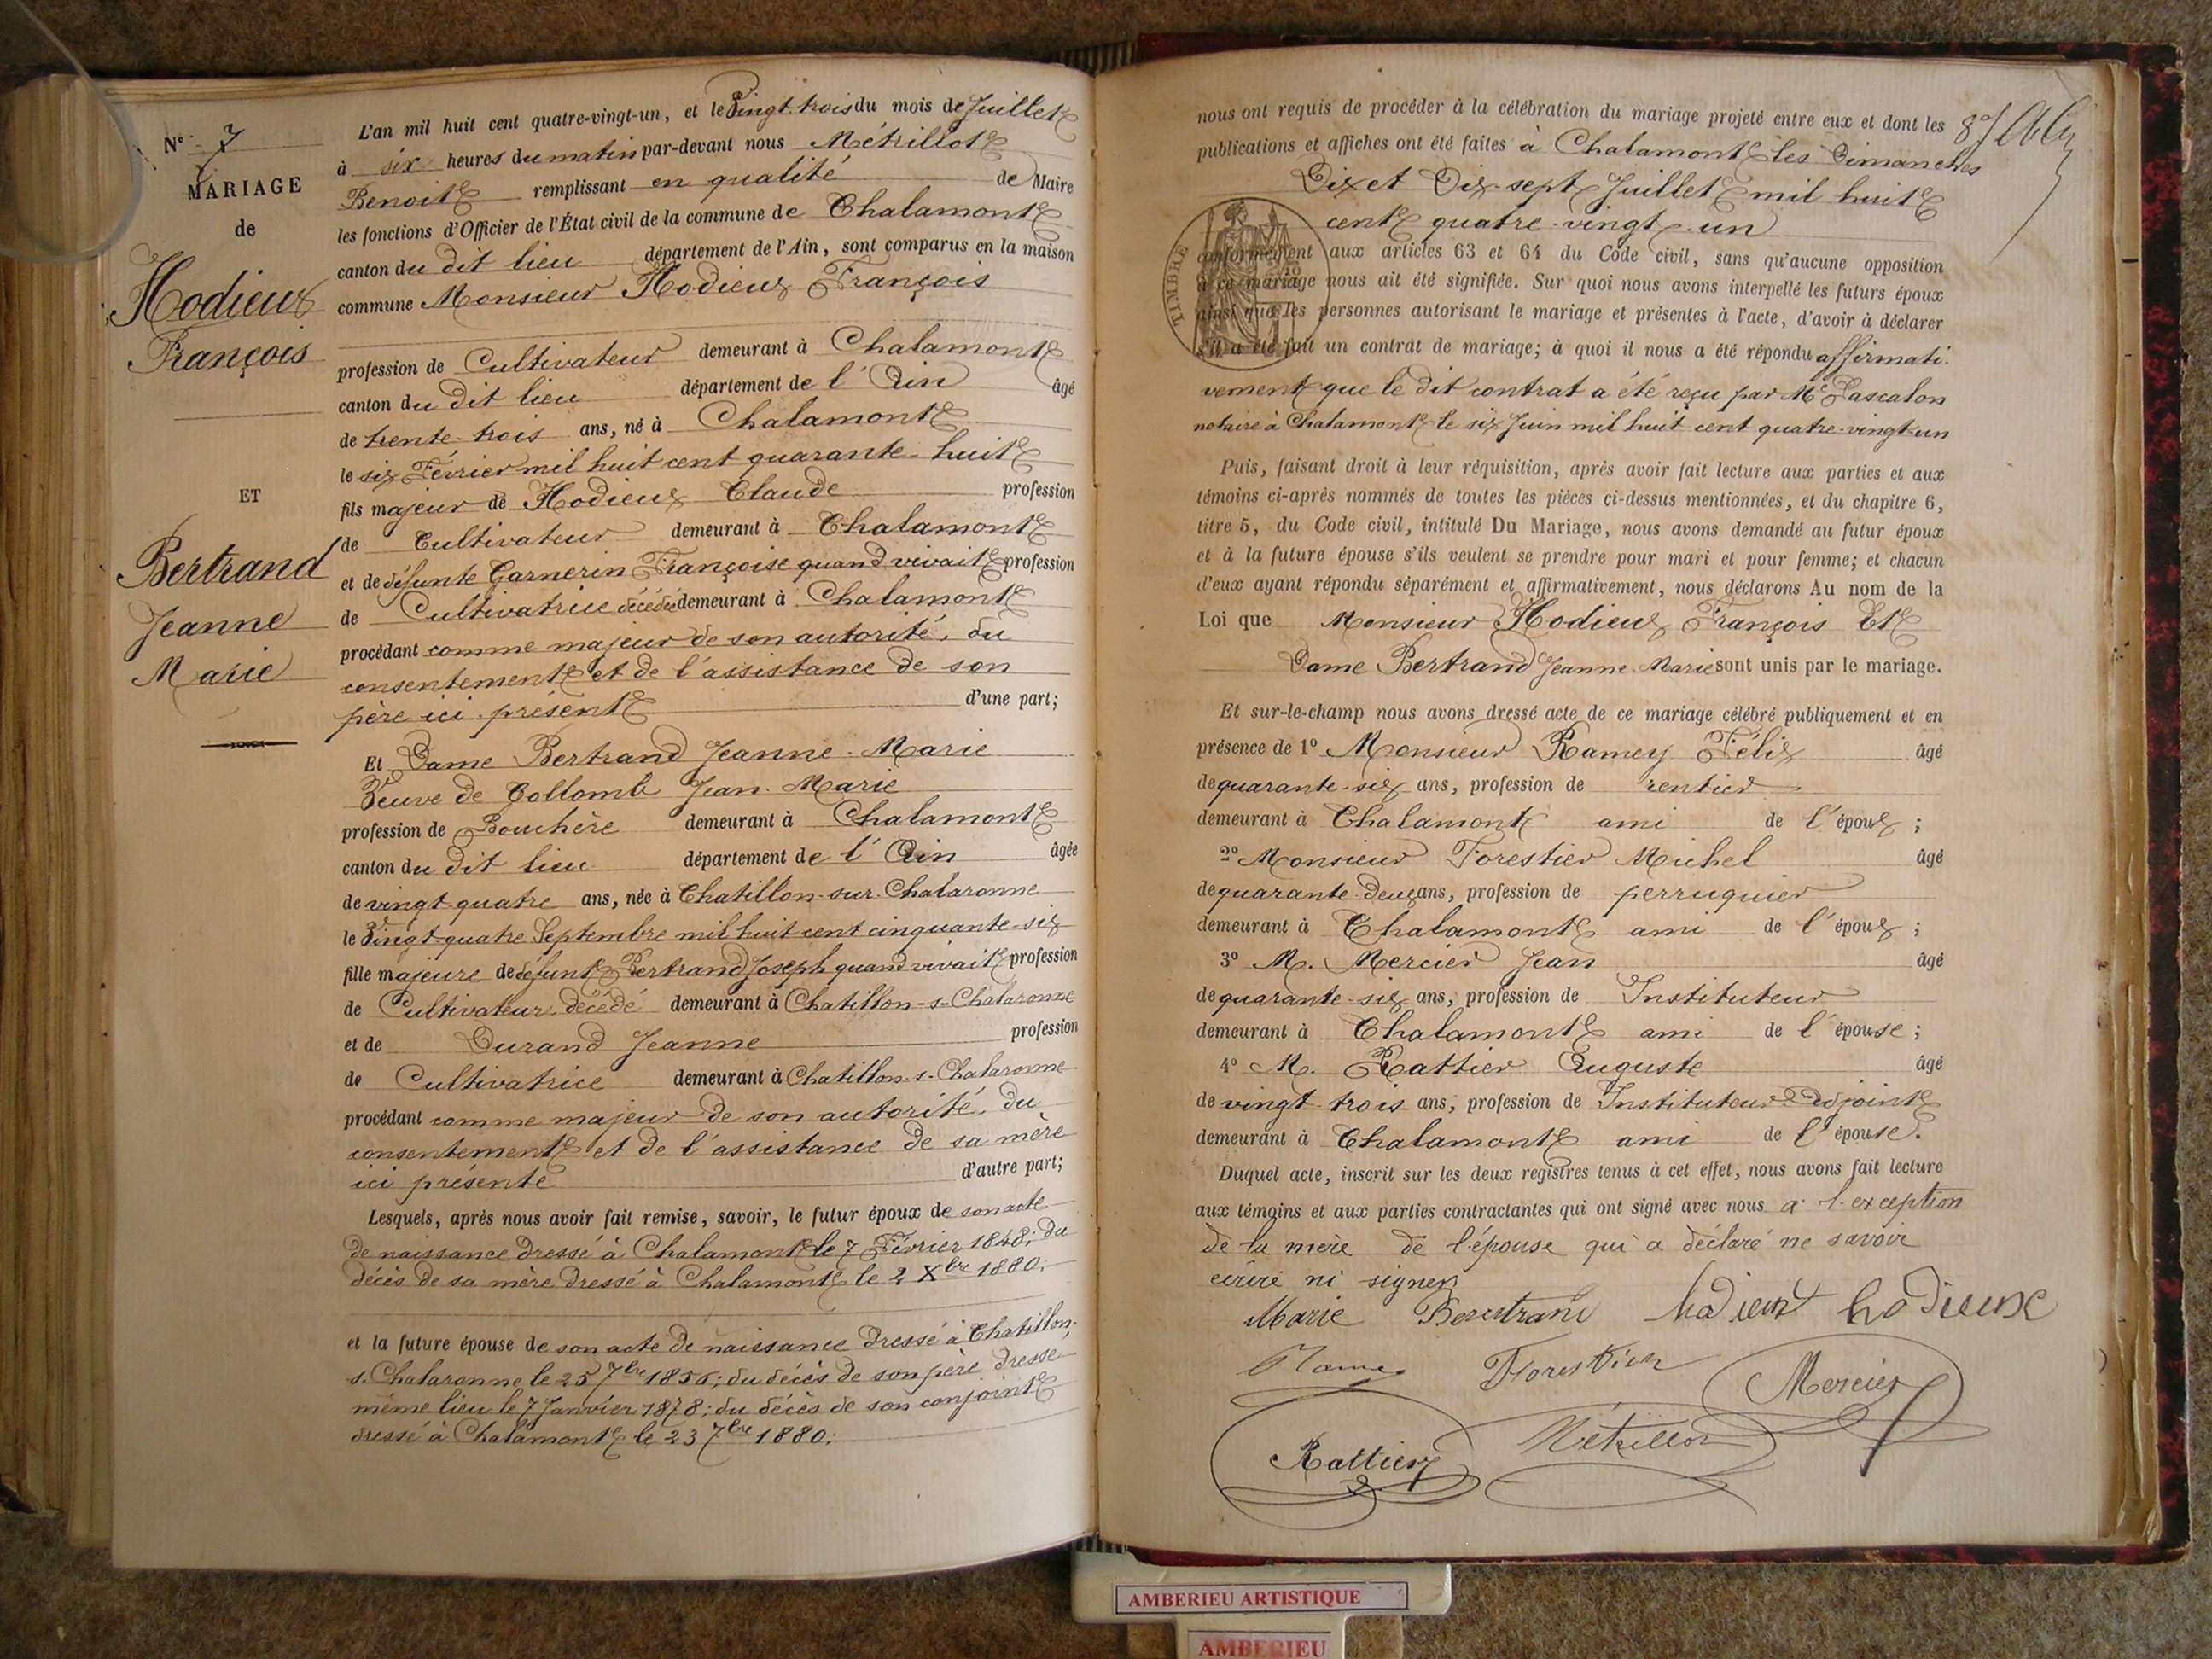 N° 7
MARIAGE
de
Hodieux
François
ET
Bertrand
Jeanne
Marie
L'an mil huit cent quatre-vingt-un, et le Vingt-trois du mois de Juillet
à six heures du matin par-devant nous Métrillot
Benoit remplissant en qualité de Maire
les fonctions d'Officier de l'État civil de la commune de Chalamont
canton du dit lieu département de l'Ain, sont comparus en la maison
commune Monsieur Hodieux François
profession de Cultivateur demeurant à Chalamont
canton du dit lieu département de l'Ain âgé
de trente-trois ans, né à Chalamont
le six Février mil huit cent quarante-huit
fils majeur de Hodieux Claude profession
de Cultivateur demeurant à Chalamont
et de défunte Garnerin Françoise quand vivait profession
de Cultivatrice décédée demeurant à Chalamont
procédant comme majeur de son autorité, du
consentement et de l'assistance de son
père ici présent d'une part;
Et Dame Bertrand Jeanne-Marie
Veuve de Collomb Jean-Marie
profession de Bouchère demeurant à Chalamont
canton du dit lieu département de l'Ain âgée
de vingt-quatre ans, née à Chatillon-sur-Chalaronne
le Vingt-quatre Septembre mil huit cent cinquante-six
fille majeure de défunt Bertrand Joseph quand vivait profession
de Cultivateur décédé demeurant à Chatillon-s-Chalaronne
et de Durand Jeanne profession
de Cultivatrice demeurant à Chatillon-s-Chalaronne
procédant comme majeur de son autorité, du
consentement et de l'assistance de sa mère
ici présente d'autre part;
Lesquels, après nous avoir fait remise, savoir, le futur époux de son acte
de naissance dressé à Chalamont le 7 Février 1848; du
décès de sa mère dressé à Chalamont le 2 Xbre 1880;
et la future épouse de son acte de naissance dressé à Chatillon-
s-Chalaronne le 25 7bre 1856; du décès de son père dressé
même lieu le 7 Janvier 1878; du décès de son conjoint
dressé à Chalamont le 23 7bre 1880;
nous ont requis de procéder à la célébration du mariage projeté entre eux et dont les
publications et affiches ont été faites à Chalamont les Dimanches
Dix et Dix-sept Juillet mil huit
cent quatre-vingt-un
TIMBRE
conformément aux articles 63 et 64 du Code civil, sans qu'aucune opposition
à ce mariage nous ait été signifiée. Sur quoi nous avons interpellé les futurs époux
ainsi que les personnes autorisant le mariage et présentes à l'acte, d'avoir à déclarer
s'il a été fait un contrat de mariage; à quoi il nous a été répondu affirmati-
vement que le dit contrat a été reçu par Me Pascalon
notaire à Chalamont le six Juin mil huit cent quatre-vingt-un
Puis, faisant droit à leur réquisition, après avoir fait lecture aux parties et aux
témoins ci-après nommés de toutes les pièces ci-dessus mentionnées, et du chapitre 6,
titre 5, du Code civil, intitulé Du Mariage, nous avons demandé au futur époux
et à la future épouse s'ils veulent se prendre pour mari et pour femme; et chacun
d'eux ayant répondu séparément et affirmativement, nous déclarons Au nom de la
Loi que Monsieur Hodieux François Et
Dame Bertrand Jeanne-Marie sont unis par le mariage.
Et sur-le-champ nous avons dressé acte de ce mariage célébré publiquement et en
présence de 1° Monsieur Ramey Félix âgé
de quarante-six ans, profession de rentier
demeurant à Chalamont ami de l'époux;
2° Monsieur Forestier Michel âgé
de quarante-deux ans, profession de perruquier
demeurant à Chalamont ami de l'époux;
3° M. Mercier Jean âgé
de quarante-six ans, profession de Instituteur
demeurant à Chalamont ami de l'épouse;
4° M. Rattier Auguste âgé
de vingt-trois ans, profession de Instituteur-Adjoint
demeurant à Chalamont ami de l'épouse.
Duquel acte, inscrit sur les deux registres tenus à cet effet, nous avons fait lecture
aux témoins et aux parties contractantes qui ont signé avec nous à l'exception
de la mère de l'épouse qui a déclaré ne savoir
écrire ni signer
Marie Bertrand hodieux hodieux
Ramey Forestier Mercier
Rattier Métrillot
AMBERIEU ARTISTIQUE
AMBERIEU